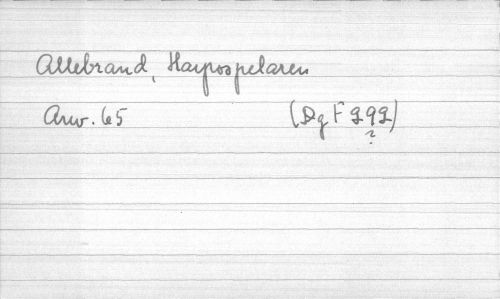 Allebrand, Harpospelaren
Arw. 65 (DgF 292)
?